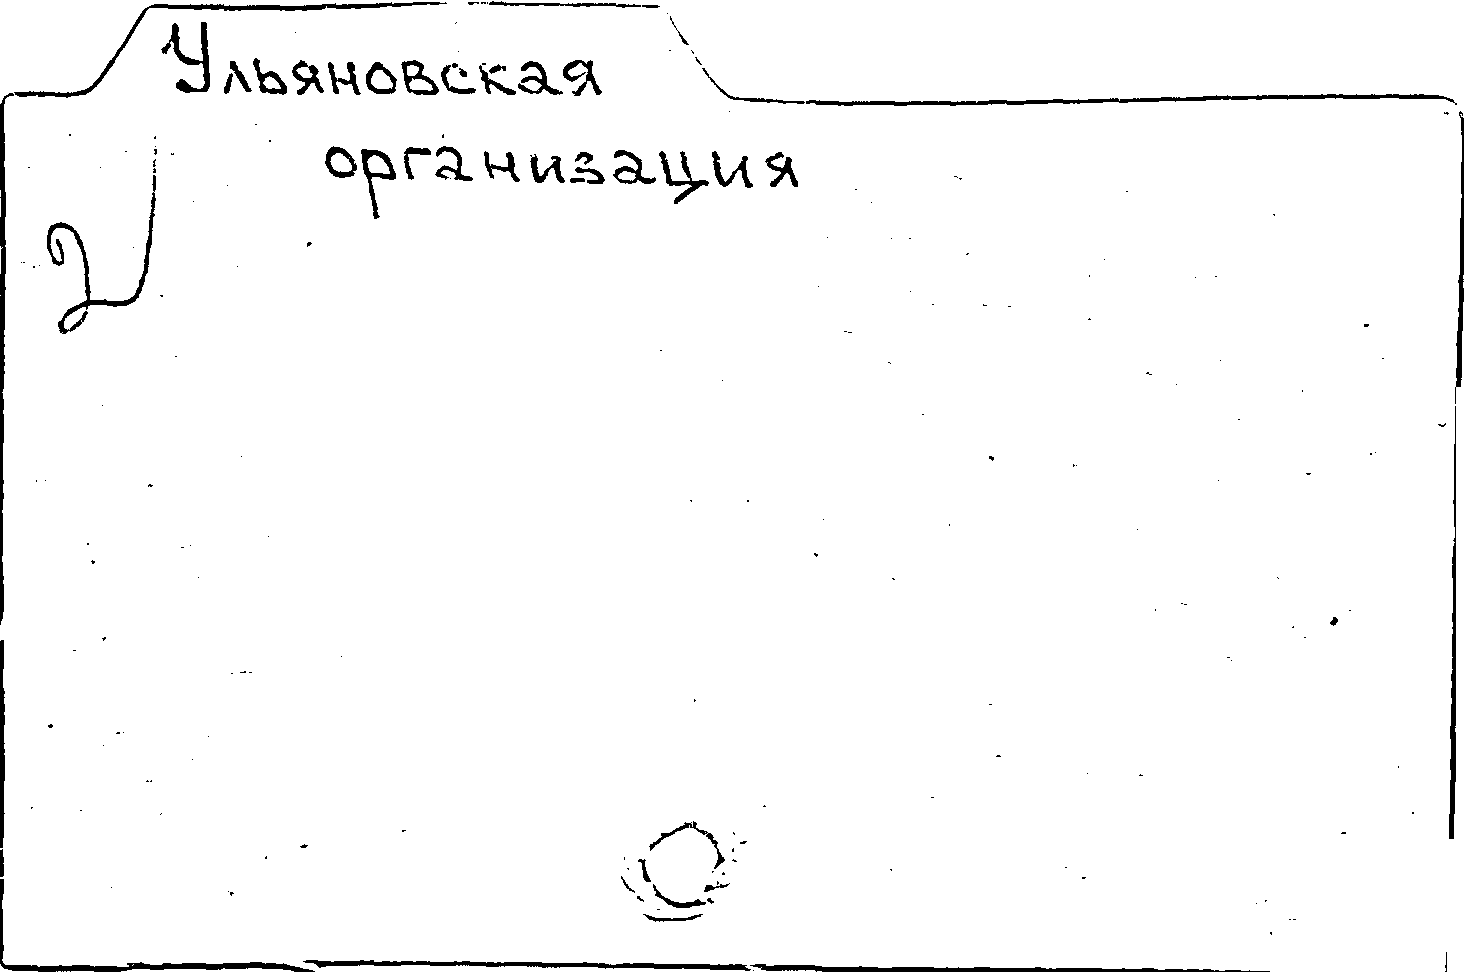 Ульяновская
организация